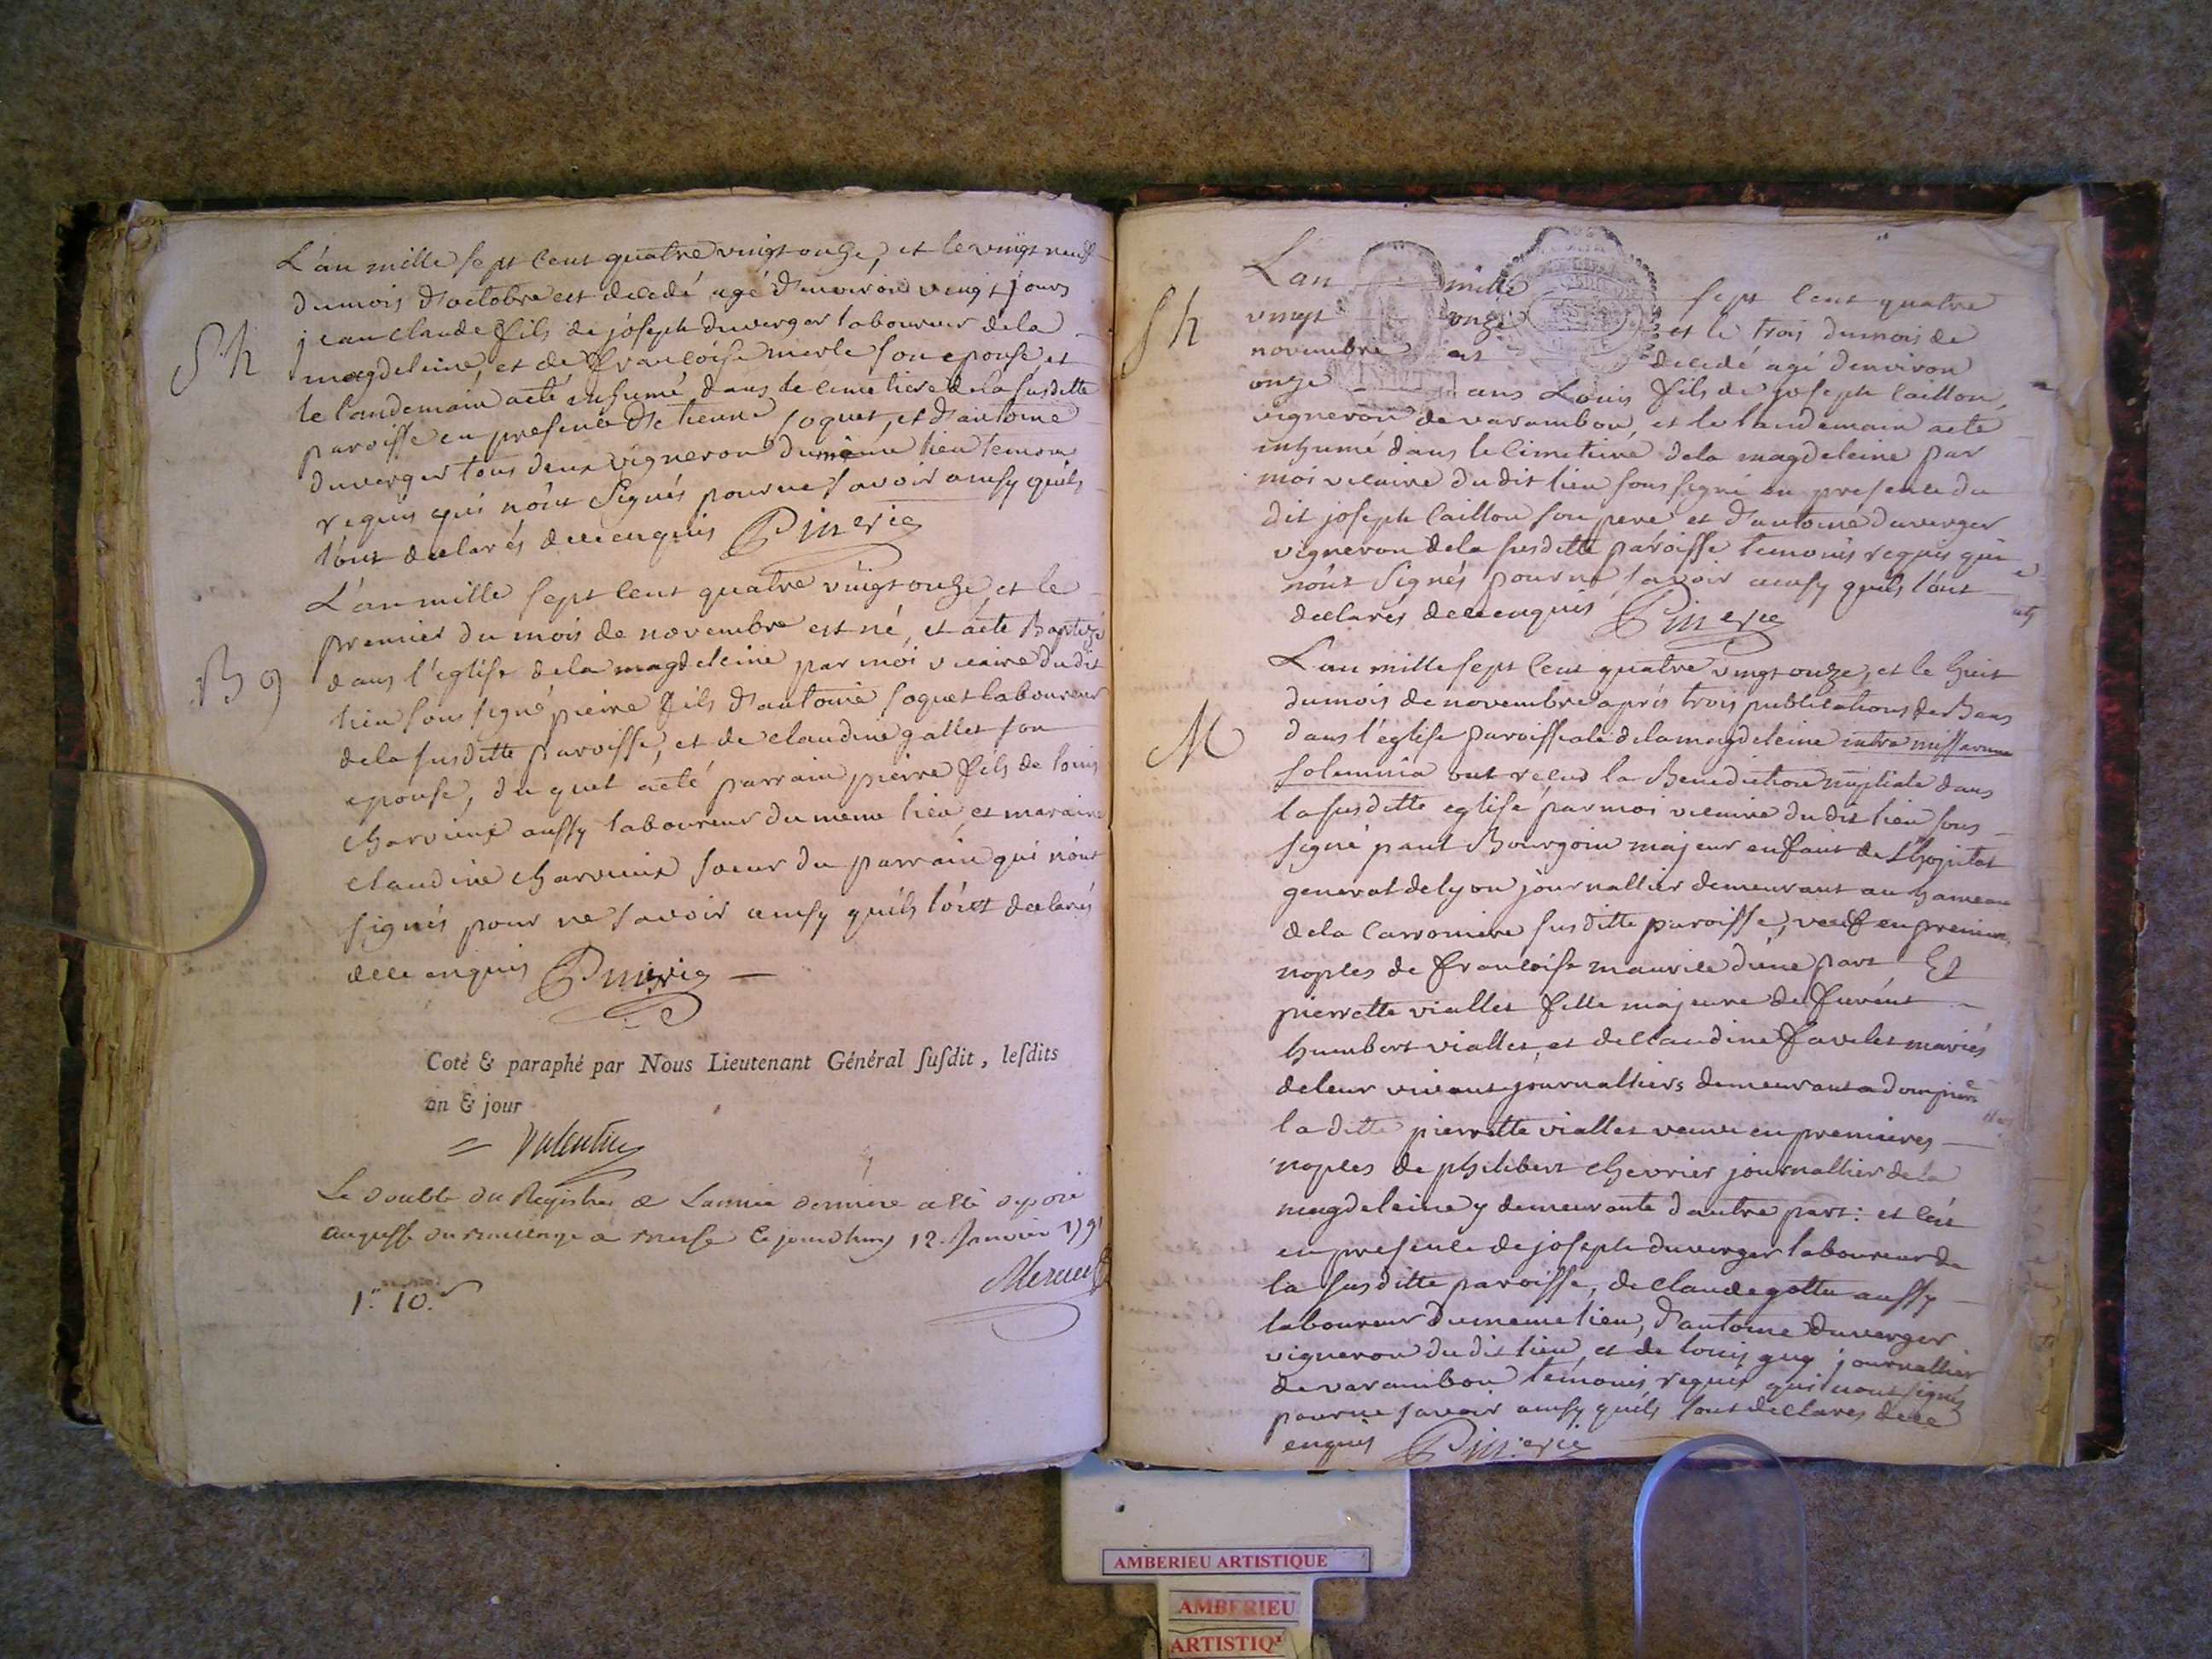 L'an mille sept cent quatre vingt onze, et le vingt neuf
du mois d'octobre est decedé agé d'environ vingt jours
Sh
jean claude fils de joseph duverger laboureur de la
magdeleine, et de francoise merle son epouse, et
le landemain a eté inhumé dans le cimetiere de la susditte
paroisse en presence d'etienne soquet, et d'antoine
duverger tous deux vigneron du même lieu temoins
requis qui n'ont signés pour ne savoir ainsy quils
l'ont declarés de ce enquis Pinerie
L'an mille sept cent quatre vingt onze, et le
premier du mois de novembre est né, et a eté Baptizé
dans l'eglise de la magdeleine par moi vicaire du dit
B 9
lieu sous signé pierre fils d'antoine soquet laboureur
de la susditte paroisse, et de claudine gallet son
epouse, du quel a eté parrain pierre fils de louis
charvieux aussy laboureur du meme lieu, et maraine
claudine charvieux soeur du parrain qui n'ont
signés pour ne savoir ainsy quils l'ont declarés
de ce enquis Pinerie
Coté & paraphé par Nous Lieutenant Général susdit, lesdits
an & jour
Valentin
Le double du Registre de L'année derniere a eté deposé
au greffe du Baillage de Bresse Ce jourdhuy 12. Janvier 1791
1.er 10.
L'an mille sept cent quatre
Sh
vingt onze et le trois du mois de
novembre est decedé agé denviron
onze ans Louis fils de joseph caillon
vigneron de varambon, et le landemain a eté
inhumé dans le cimetiere de la magdeleine par
moi vicaire du dit lieu sous signé en presence du
dit joseph caillon son pere et d'antoine duverger
vigneron de la susditte paroisse temoins requis qui
n'ont signés pour ne savoir ainsy quils l'ont
declarés de ce enquis Pinerie
L'an mille sept cent quatre vingt onze, et le huit
du mois de novembre après trois publications de Bans
M
dans l'église paroissiale de la magdeleine intra missarum
solemnia ont recus la Benediction nuptiale dans
la susditte eglise par moi vicaire du dit lieu sous
signé paul Bourgoin majeur enfant de l'hopital
general de lyon journallier demeurant au hameau
de la carroniere susditte paroisse, veuf en premiere
noples de francoise maurice d'une part Et
pierrette viallet fille majeure de furent
humbert viallet, et de claudine favelet mariés
de leur vivant journalliers demeurant a dompierre
la ditte pierrette viallet veuve en premieres
noples de philibert chevrier journallier de la
magdeleine y demeurante d'autre part: et ce
en presence de joseph duverger laboureur de
la susditte paroisse, de claude gottu aussy
laboureur du meme lieu, d'antoine duverger
vigneron du dit lieu, et de louis guy journallier
de varambon temoins requis qui n'ont signés
pour ne savoir ainsy quils l'ont declarés de ce
enquis Pinerie
AMBERIEU ARTISTIQUE
AMBERIEU
ARTISTIQ